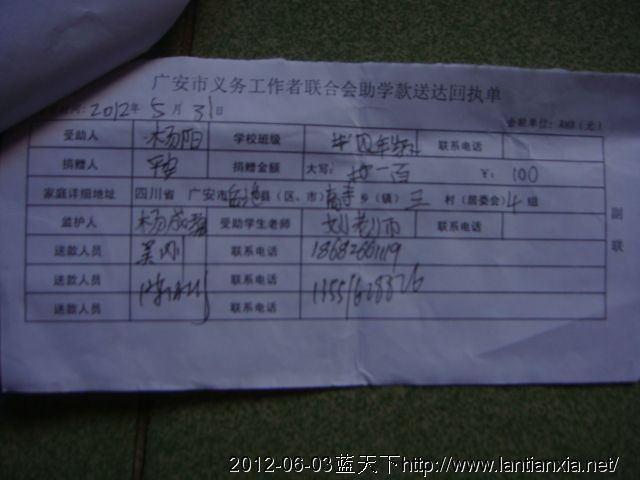 广安市义务工作者联合会助学款送达回执单
2012年 5月 31日 金额单位：RMB（元）
受助人 杨阳 学校班级 四年级 联系电话
捐赠人 平安 捐赠金额 大写： 一百 ￥： 100
家庭详细地址 四川省 广安市岳池县（区、市） 乡（镇） 三 村（居委会）4组
监护人 杨成 受助学生老师 刘老师 联系电话
送款人员 吴刚 联系电话 18682661119
送款人员 联系电话
送款人员 联系电话
副联
2012-06-03蓝天下http://www.lantianxia.net/